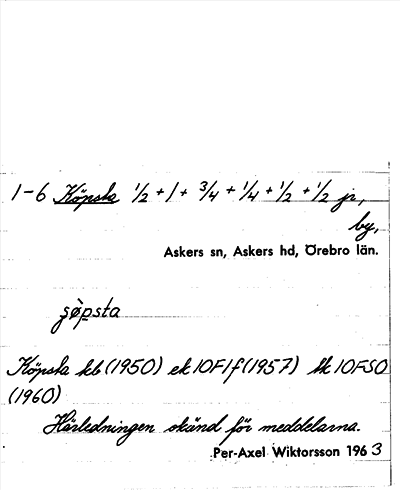 1-6 Köpsta 1/2 + 1 + 3/4 + 1/4 + 1/2 + 1/2 jr,
by,
Askers sn, Askers hd, Örebro län.
Köpsta kb (1950) ek 10F1f (1957) tk 10FSO
(1960)
Härledningen okänd för meddelarna.
Per-Axel Wiktorsson 1963